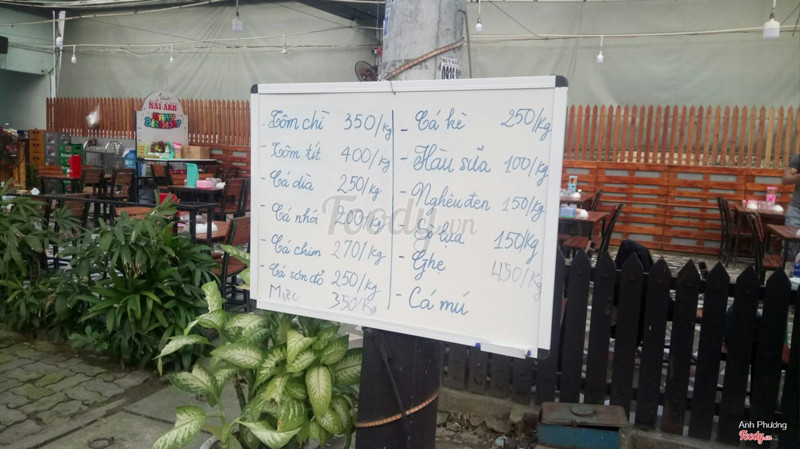 HẢI ANH
Tôm chì 350/kg
Tôm tít 400/kg
Cá dìa 250/kg
Cá nhá 200/kg
Cá chim 270/kg
Cá sơn đỏ 250/kg
Mực 350/kg
- Cá kè 250/kg
- Hàu sữa 100/kg
- Nghêu đen 150/kg
150/kg
- Ghẹ 450/kg
- Cá mú
Foody.vn
Anh Phương
Foody.vn